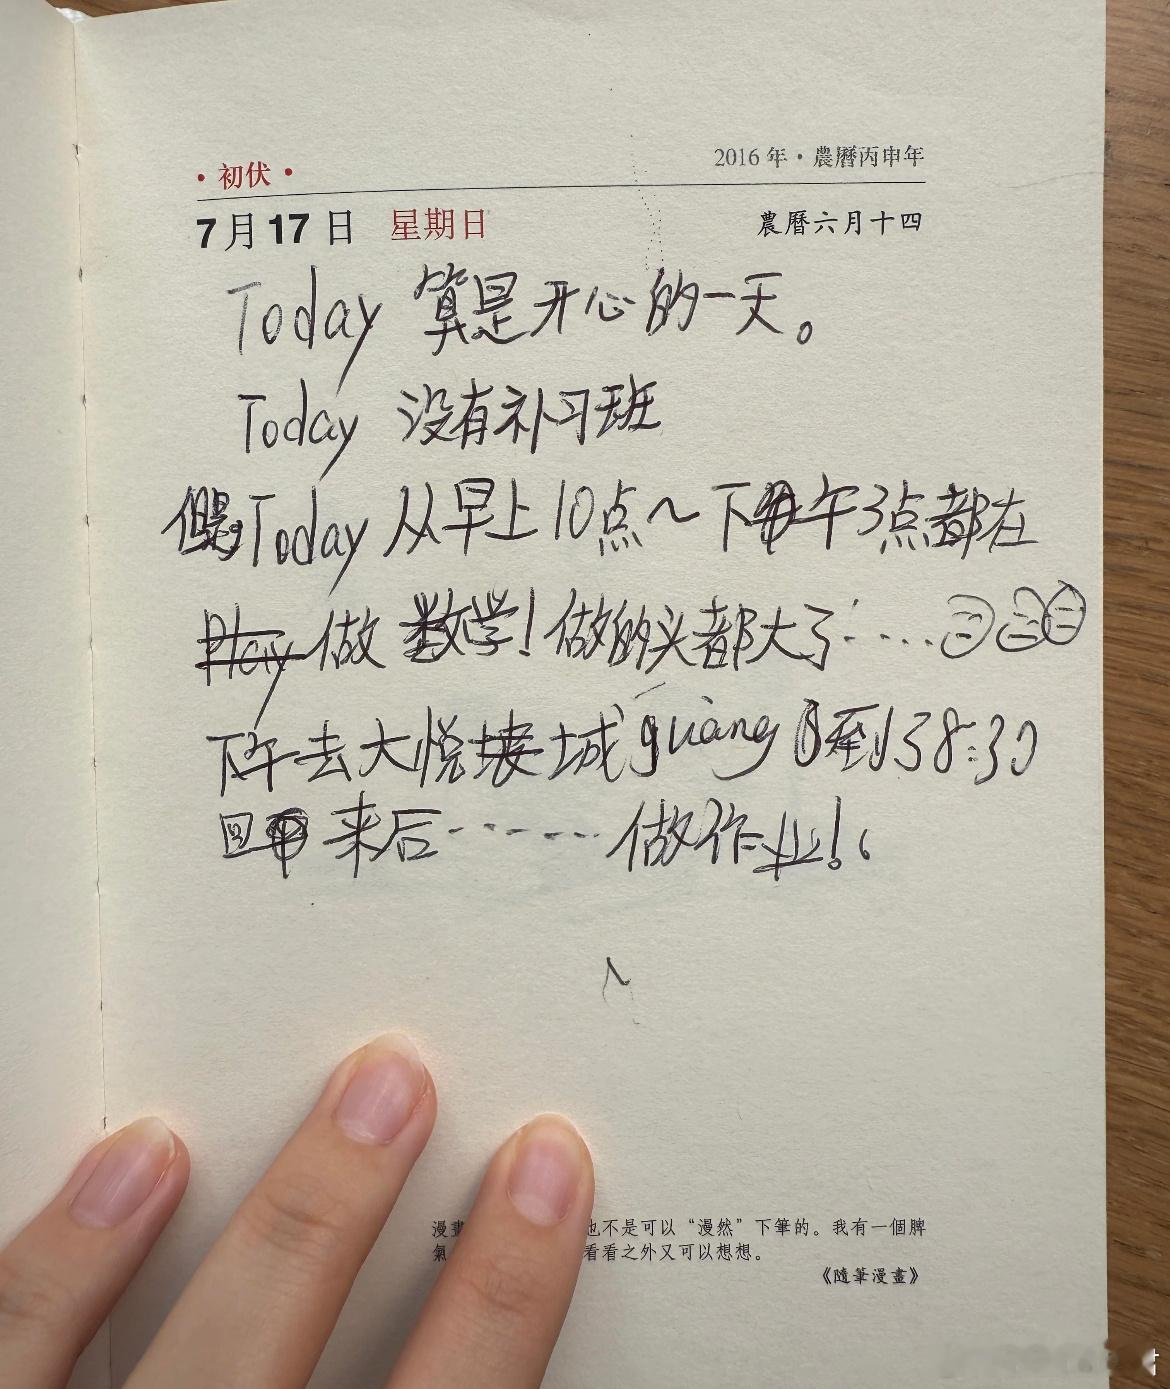 ·初伏·
2016年·農曆丙申年
7月17日 星期日
農曆六月十四
Today 算是开心的一天。
Today 没有补习班
但是Today从早上10点~下午3点都在
Play 做数学!做的头都大了……
下午去大悦城guàng到8:30
回来后……做作业!
漫畫
也不是可以“漫然”下筆的。我有一個脾
氣
看看之外又可以想想。
《隨筆漫畫》